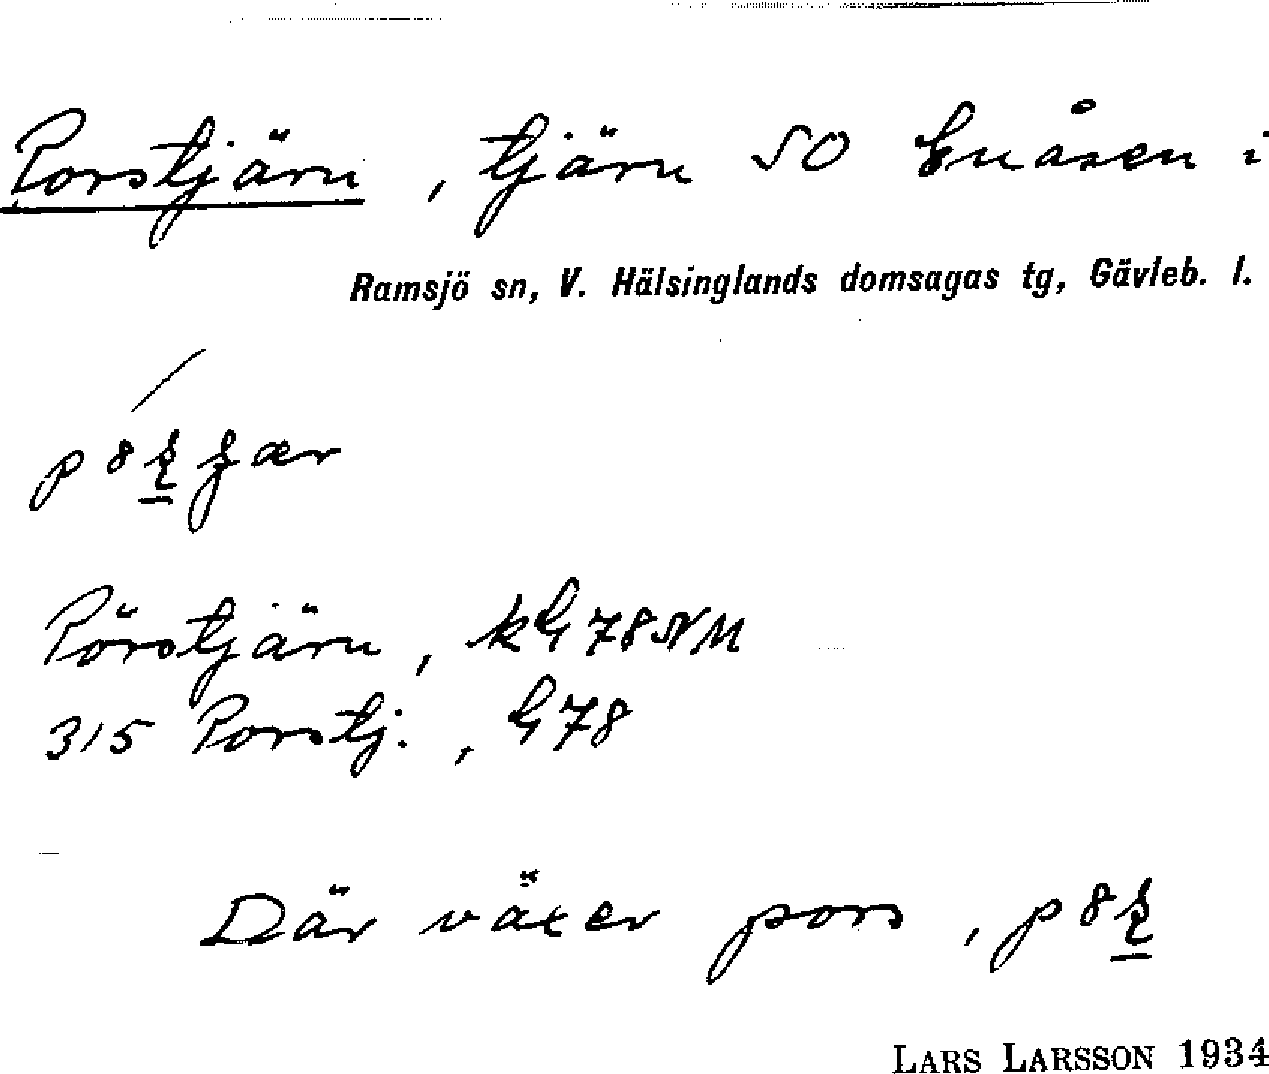 Porstjärn, tjärn SO Gnåsen i
Ramsjö sn, V. Hälsinglands domsagas tg, Gävleb. l.
Pörstjärn, kG78NM
315 Porstj., G78
Där växer pors,
LARS LARSSON 1934